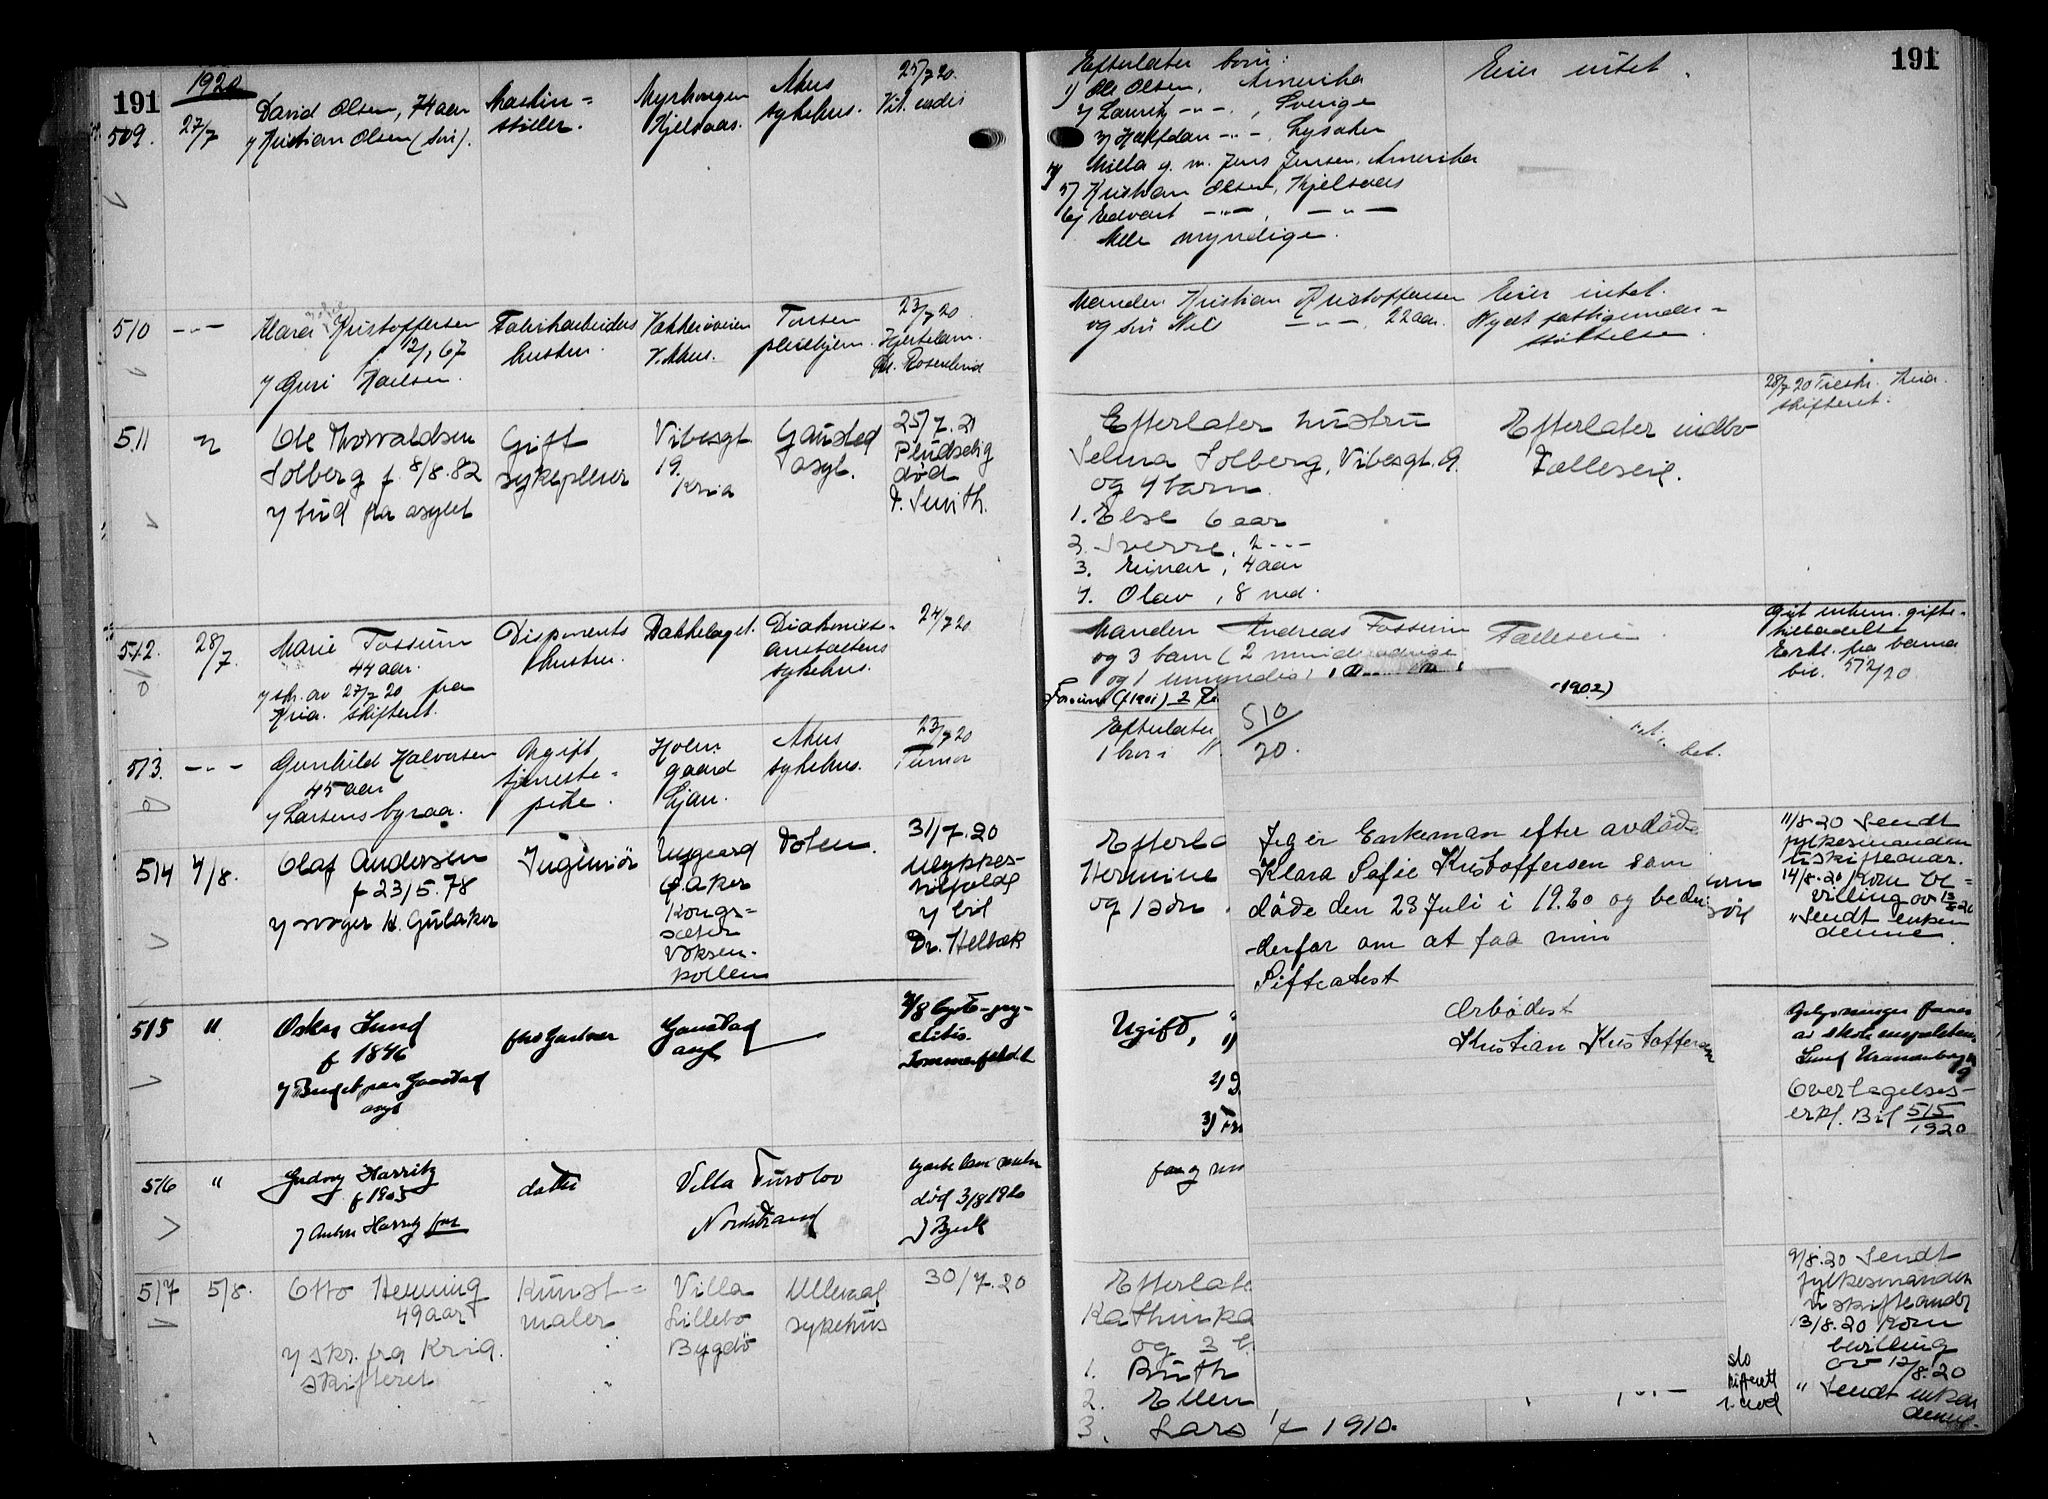 191
1920
509.
27/7
David Olsen, 74 aar
v/ Kristian Olsen (søn).
Maskin=
stiller.
Myrhaugen
Kjelsaas.
Akers
sykehus.
25/7 20.
Vit. cordis
510
— " —
Klara Kristoffersen
f. 12/1 67
v/ Guri Karlsen.
Fabrikarbeiders
hustru.
Vækkerøveien
V. Aker.
Tonsen
pleiehjem.
23/7 20.
Hjertelam.
Dr. Rosenlund
511
"
Ole Thorvaldsen
Solberg f. 8/8. 82
v/ bud fra asylet
Gift
sykepleier
Vibesgt
19.
Kria
Gaustad
asyl.
25/7. 20
Pludselig
død
D. Smith.
512.
28/7.
Marie Fossum
44 aar.
v/ skr. av 27/7 20 fra
Kria. skifteret.
Disponents
hustru.
Bakkelaget.
Diakonisse-
anstaltens
sykehus.
24/7 20
513.
— " —
Gunhild Halvorsen
45 aar
v/ Larsens byraa.
Ugift
tjeneste=
pike.
Holm
gaard
Ljan.
Akers
sykehus.
23/7 20
Tumor
514
4/8.
Olaf Andersen
f 23/5. 78
v/ svoger K. Gulaker
Ingeniør
Nygaard
Ø. Aker
Kongs=
sæter
Voksen-
kollen
Toten.
31/7. 20
Ulykkes-
tilfælde
v/ bil
Dr. Helbæk
515
"
Oskar Lund
f 1846
v/ Budet paa Gaustad
asyl
fhv Gartner
Gaustad
asyl
Sommerfeldt
516
"
f 1905
v/ Anton Harritz far
datter
Villa Furulov
Nordstrand
død 3/8 1920
517
5/8.
Otto Henning
49 aar
v/ skr. fra Kria.
skifteret
Kunst=
maler
Villa
Lillebo
Bygdø
Ullevaal
sykehus
30/7. 20
191
Efterlater barn:
1) Ole Olsen, Amerika
2) Lauritz — " — , Sverige
3) Halfdan — " — , Lysaker
4) Milla g. m. Jens Jensen, Amerika
5) Kristian Olsen, Kjelsaas
6) Edvart — " — , — " —
Alle myndige.
Eier intet.
Manden Kristian Kristoffersen
og søn Nils — " — , 22 aar.
Eier intet.
Nydt fattigunder=
støttelse.
Efterlater hustru
Selma Solberg, Vibesgt. 19.
og 4 barn.
1. Else 6 aar
2. Sverre, 2 — " —
3. Einar, 4 aar
4. Olav, 8 md.
Efterlater indbo
Fælleseie.
28/7 20 Tilstr. Kria.
skifteret.
Manden Andreas Fossum
og 3 barn (2 mindreaarige
og 1 umyndig)
Fossum (f 1901) 2
1902)
Fælleseie
Git uskm. gifte-
Erkl. fra barna
bil. 512/20
Efterlater
1 bror
Efterla
Hermine
og 1 søn
11/8 20 Sendt
fylkesmanden
u skifteandr.
14/8. 20 Kom be=
villing av 12/8 20
" Sendt enken
denne.
Ugift,
1)
2)
3)
Overtagelses-
erkl. Bil 515/1920
Efterlat
Kathinka
og 3 b
1. Ruth
2. Ellen
3. Lars f 1910.
9/8. 20 Sendt
fylkesmanden
u skifteandr
13/8. 20 Kom
bevilling
av 12/8. 20
" Sendt enken
denne.
510/20.
Jeg er Enkeman efter avdøde
Klara Sofie Kristoffersen som
døde den 23 Juli i 19.20 og beder
derfor om at faa min
Sifteatest
Ærbødest
Kristian Kristoffersen